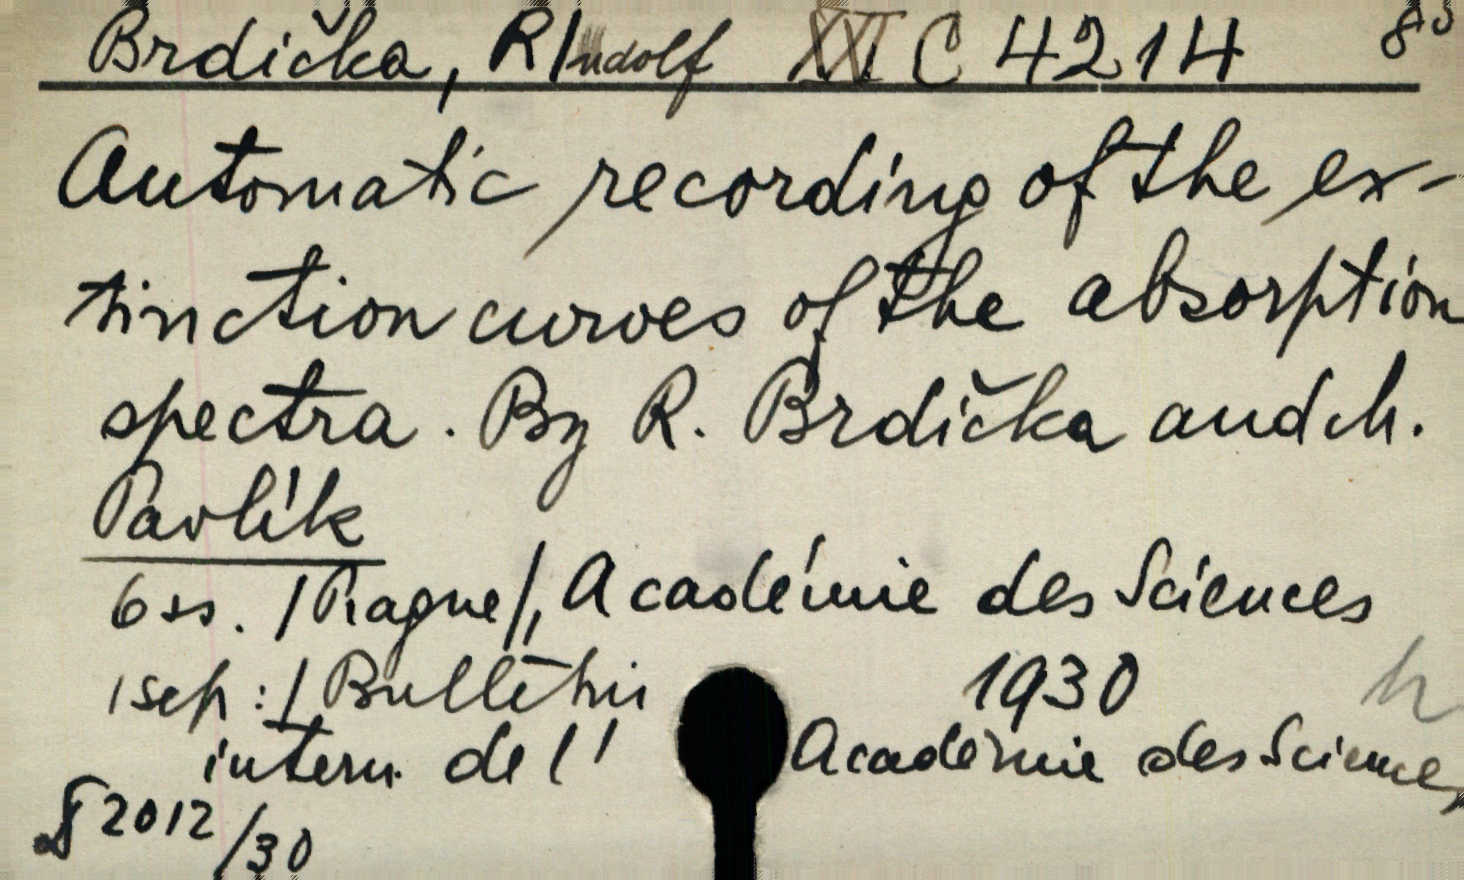 Brdička, R/udolf XVI C 4214 8°
Automatic recording of the ex-
tinction curves of the absorption
spectra. By R. Brdička and M.
Pavlík
6 ss. /Prague/, Académie des Sciences
1930
/sep:/ Bulletin
intern. de l' Académie des Sciences
2012/30